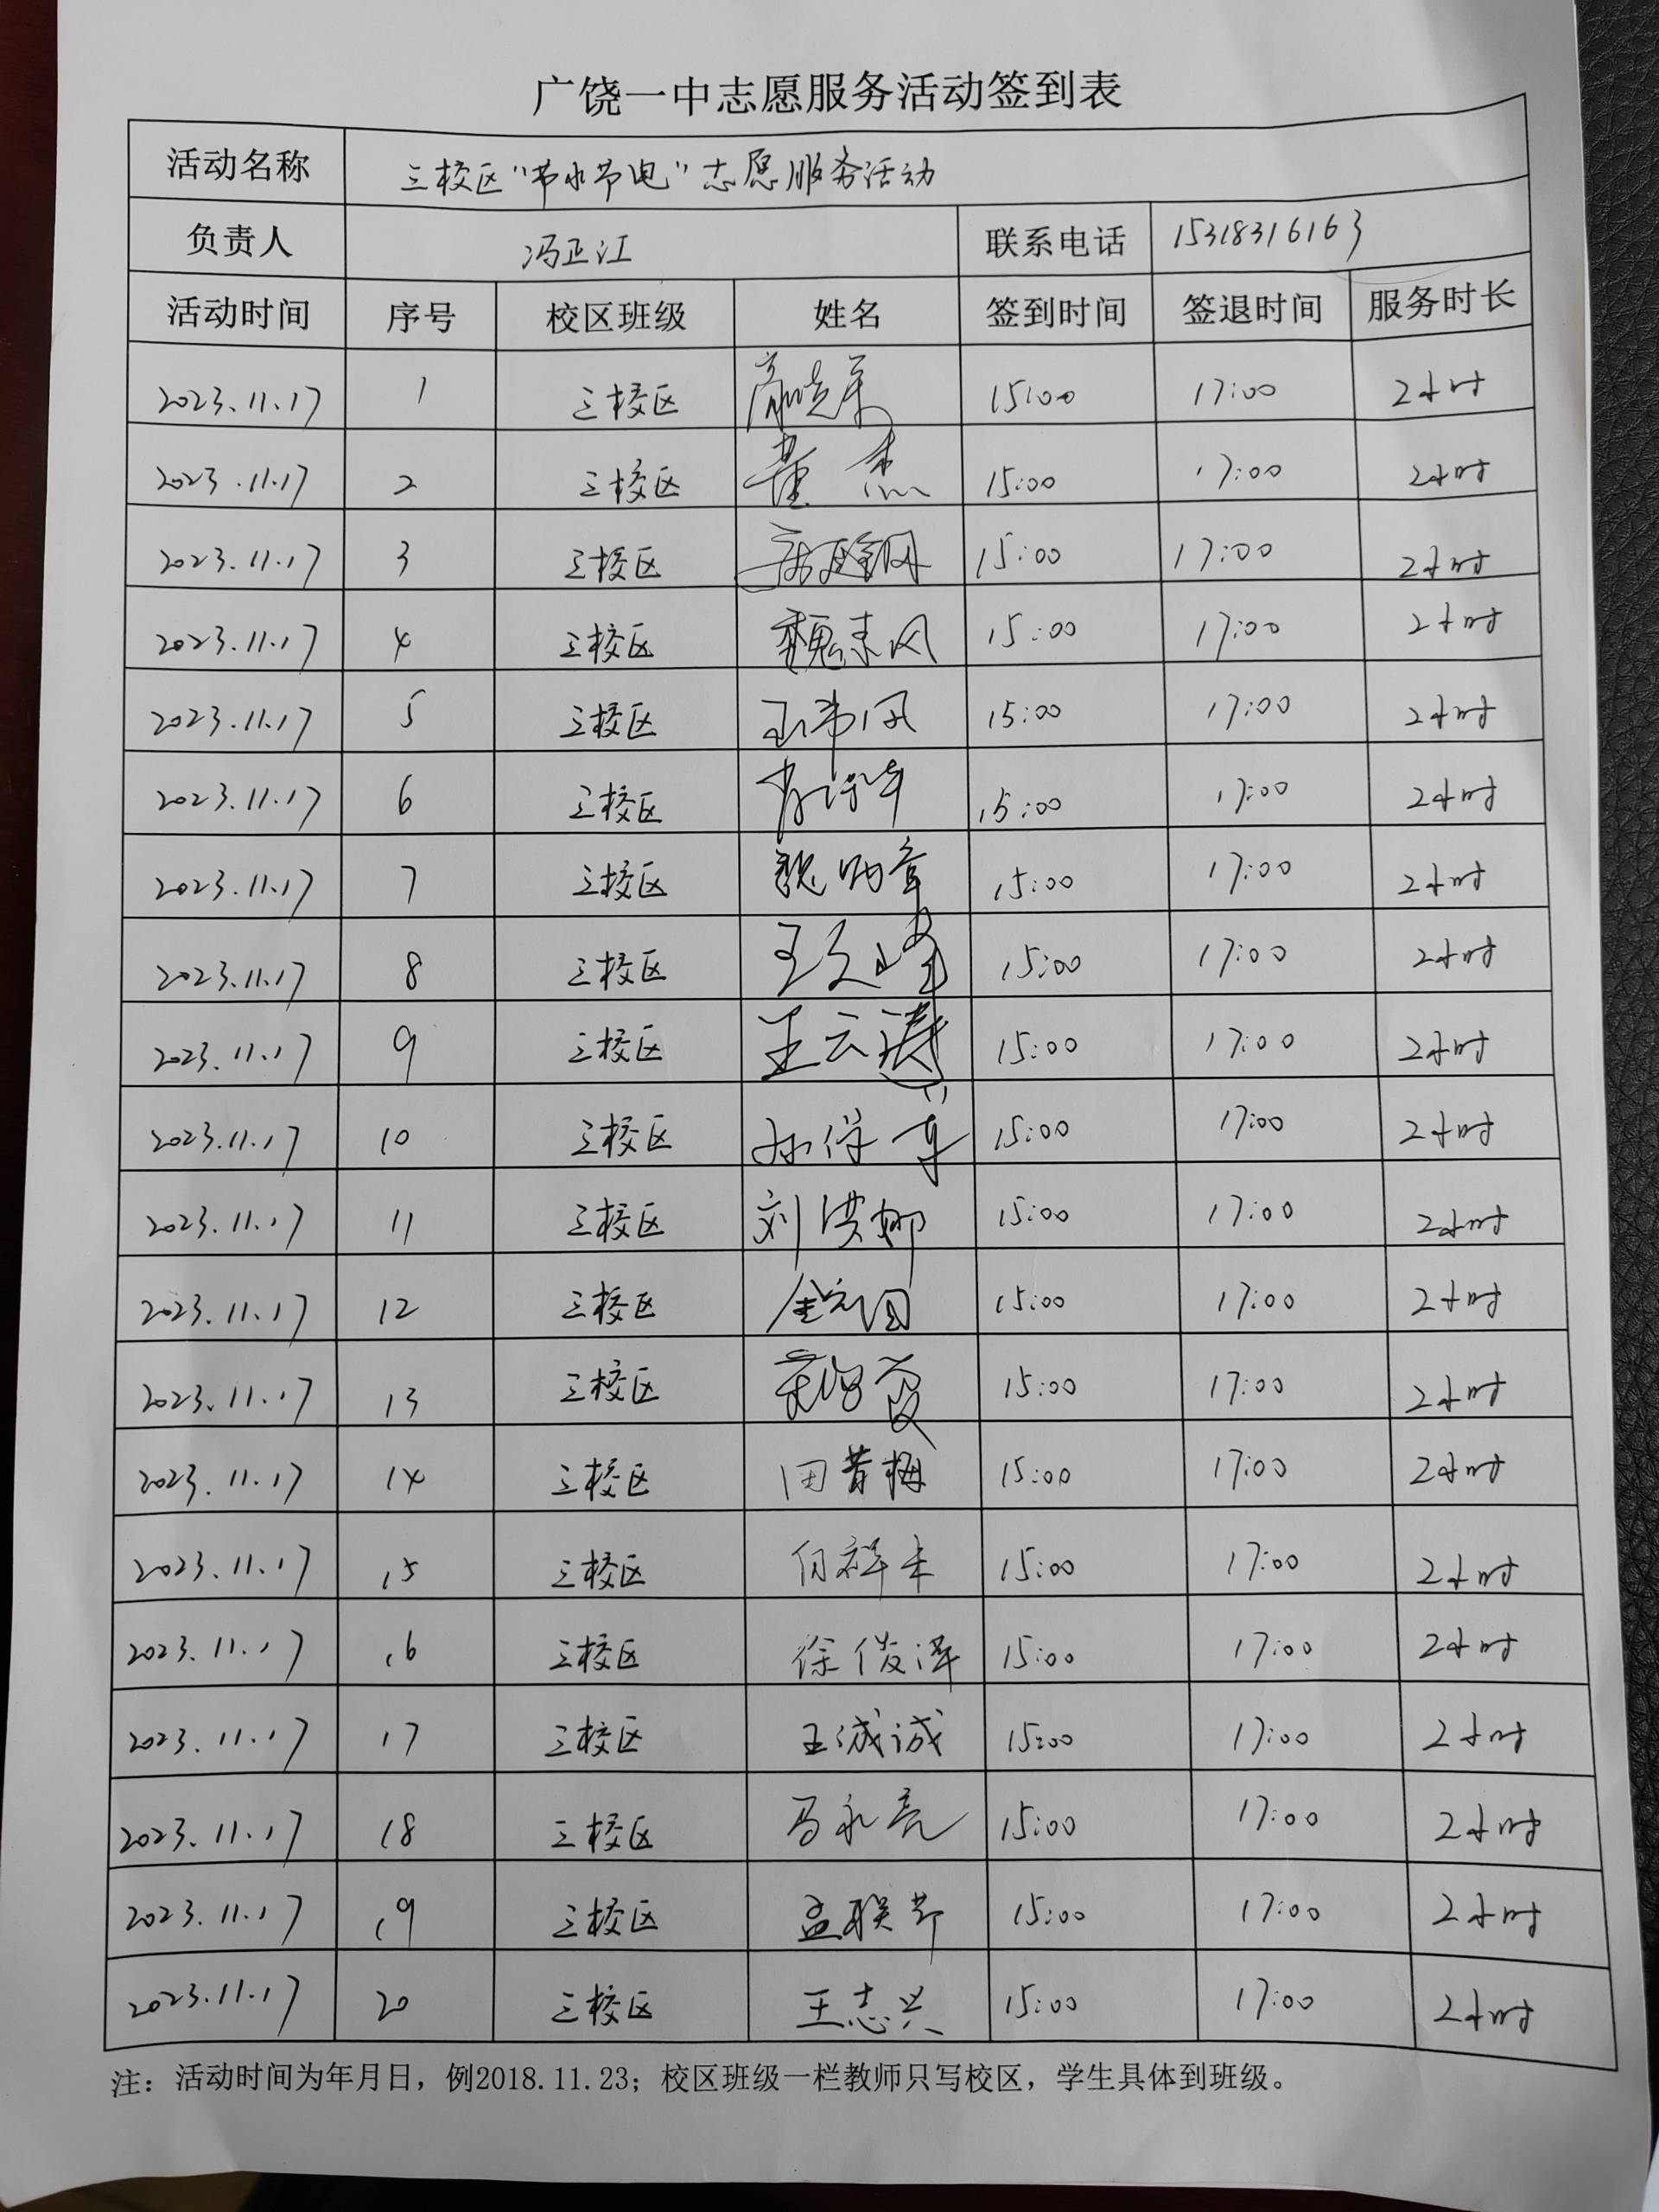 广饶一中志愿服务活动签到表
活动名称 三校区“节水节电”志愿服务活动
负责人 冯正江 联系电话 15318316163
活动时间 序号 校区班级 姓名 签到时间 签退时间 服务时长
2023.11.17 1 三校区 15:00 17:00 2小时
2023.11.17 2 三校区 董杰 15:00 17:00 2小时
2023.11.17 3 三校区 15:00 17:00 2小时
2023.11.17 4 三校区 魏来风 15:00 17:00 2小时
2023.11.17 5 三校区 15:00 17:00 2小时
2023.11.17 6 三校区 15:00 17:00 2小时
2023.11.17 7 三校区 魏炳章 15:00 17:00 2小时
2023.11.17 8 三校区 王文峰 15:00 17:00 2小时
2023.11.17 9 三校区 王云涛 15:00 17:00 2小时
2023.11.17 10 三校区 15:00 17:00 2小时
2023.11.17 11 三校区 刘洪娜 15:00 17:00 2小时
2023.11.17 12 三校区 15:00 17:00 2小时
2023.11.17 13 三校区 15:00 17:00 2小时
2023.11.17 14 三校区 15:00 17:00 2小时
2023.11.17 15 三校区 15:00 17:00 2小时
2023.11.17 16 三校区 徐俊泽 15:00 17:00 2小时
2023.11.17 17 三校区 王诚诚 15:00 17:00 2小时
2023.11.17 18 三校区 马永亮 15:00 17:00 2小时
2023.11.17 19 三校区 孟联节 15:00 17:00 2小时
2023.11.17 20 三校区 王志兴 15:00 17:00 2小时
注：活动时间为年月日，例2018.11.23；校区班级一栏教师只写校区，学生具体到班级。